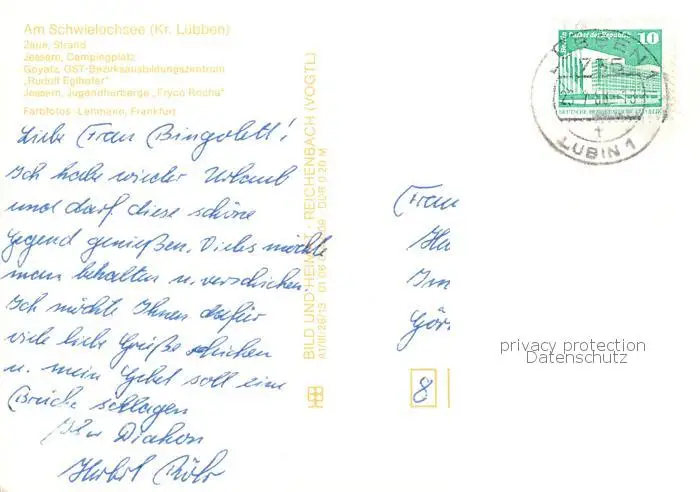 Am Schwielochsee (Kr. Lübben)
Zaue, Strand
Jessern, Campingplatz
Goyatz, GST-Bezirksausbildungszentrum
„Rudolf Eglhofer"
Jessern, Jugendherberge „Fryco Rocha"
Farbfotos: Lehmann, Frankfurt
Liebe Frau Bingolett!
Ich habe wieder Urlaub
und darf diese schöne
Gegend genießen. Vieles möchte
man behalten u. verschicken.
Ich möchte Ihnen dafür
viele liebe Grüße schicken
u. mein Gebet soll eine
Brücke schlagen
Ihr Diakon
BILD UND HEIMAT REICHENBACH (VOGTL)
A1/III/26/13 01 06
DDR 0,20 M
10
Palast der Republik
LÜBBEN 1
LUBIN 1
Frau
Görl
8
privacy protection
Datenschutz